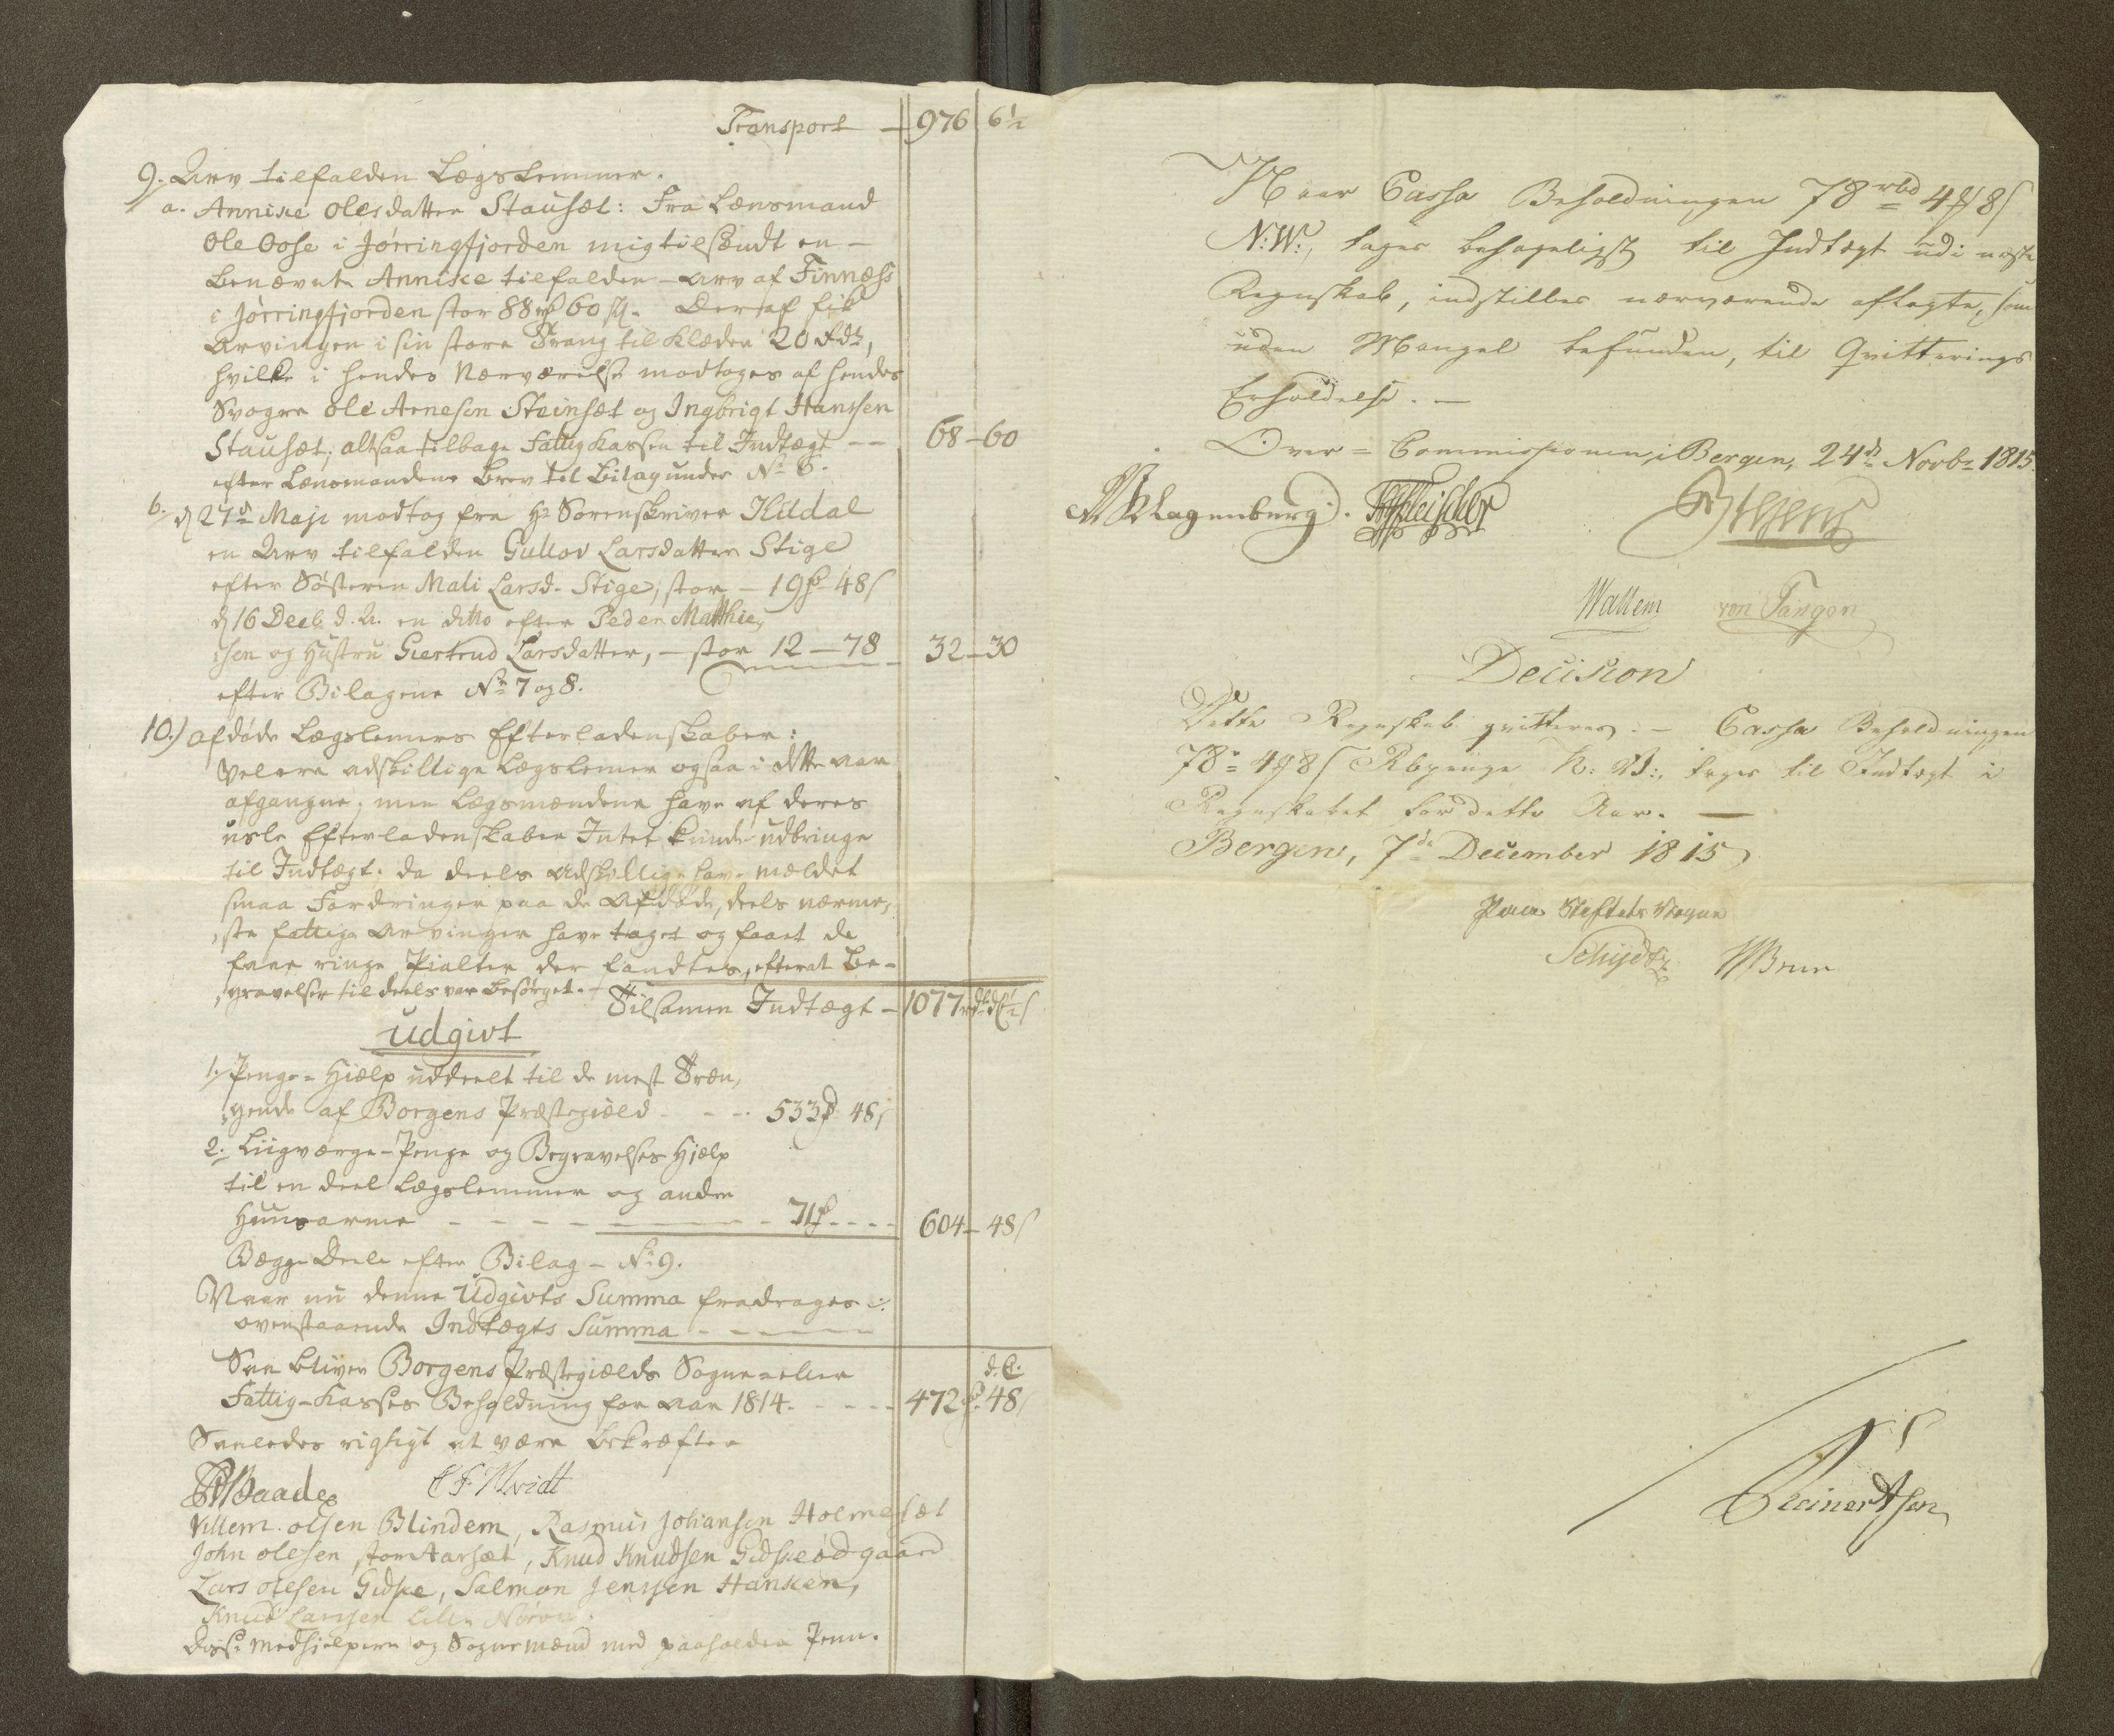 Transport — 976 6½
9. Arv tilfalden Lægslemmer.
a. Annike Olesdatter Stausæt: Fra Lensmand
Ole Oose i Jørringfjorden mig tilsendt en —
benævnte Annike tilfalden Arv af Finnæss
i Jørringfjorden stor 88 rd 60 s. Deraf fik
Arvingen i sin store Trang til Klæder 20 Rd,
hvilke i hendes Nærværelse modtoges af hendes
Svogre Ole Arnesen Steinsæt og Ingbrigt Hanssen
Stausæt; altsaa tilbage Fattig Kassen til Indtægt — 68 — 60
efter Lensmandens Brev til Bilag under No 6.
b. d 27d Maji modtog fra Hr Sorenskriver Hildal
en Arv tilfalden Gullov Larsdatter Stige
efter Søsteren Mali Larsd. Stige, stor — 19 — 48 s
d 16 Decb. d. A. en ditto efter Peder Matthie,
sen og Hustru Giertrud Larsdatter, — stor 12 — 78 32 — 30
efter Bilagene No 7 og 8.
10.) Afdøde Lægslemers Efterladenskaber:
Vel ere adskillige Lægslemer ogsaa i dette Aar
afgangne; men Lægsmændene have af deres
usle Efterladenskaber Intet kunde udbringe
til Indtægt; da deels Adskillige have meldet
smaa Fordringer paa de Afdøde, deels nærme,
ste fattige Arvinger have taget og faaet de
faae ringe Pialter der fandtes, efterat Be-
gravelser tildeels var besørget. —
Tilsamen Indtægt — 1077 ½ s
Udgivt
1. Penge-Hielp uddeelt til de mest Træn,
gende af Borgens Præstegield — 533 48 s
2. Liigværge-Penge og Begravelses Hielp
til en deel Lægslemmer og andre
Huusarme — 71 — 604 — 48 s
Begge Dele efter Bilag — No 9.
Naar nu denne Udgivts Summa fradrages
ovenstaaende Indtægts Summa —
Saa bliver Borgens Præstegields Sogne eller
Fattig-Kasses Beholdning for Aar 1814. — 472 48 s
Saaledes rigtigt at være bekræfter
Baade
Willem Olsen Blindem, Rasmus Johansen Holmesæt
John Olesen storAarsæt, Knud Knudsen Gidskeødgaard
Lars Olesen Gidske, Salmon Jenssen Hanken,
Knud Larssen Lille Nørve.
disse Medhielpere og Sognemænd med paaholden Penn.
Naar Cassa Beholdningen 78 rbd 4 # 8 s
N: W:, tages behageligst til Indtægt udi næste
Regnskab, indstilles nærværende aflagte, som
uden Mangel befunden, til Qvitterings
Erholdelse. —
Over = Commissionen i Bergen, 24d Novbr 1815.
Klagenberg. Fleischer
Wallem von Tangen
Decision
Dette Regnskab qvitteres. — Cassa Beholdningen
78 r 4 # 8 s Rbpenge N: W:, tages til Indtægt i
Regnskabet for dette Aar. —
Bergen, 7de December 1815
Paa Stiftets Vegne
Schydtz Brun
Reinertsen